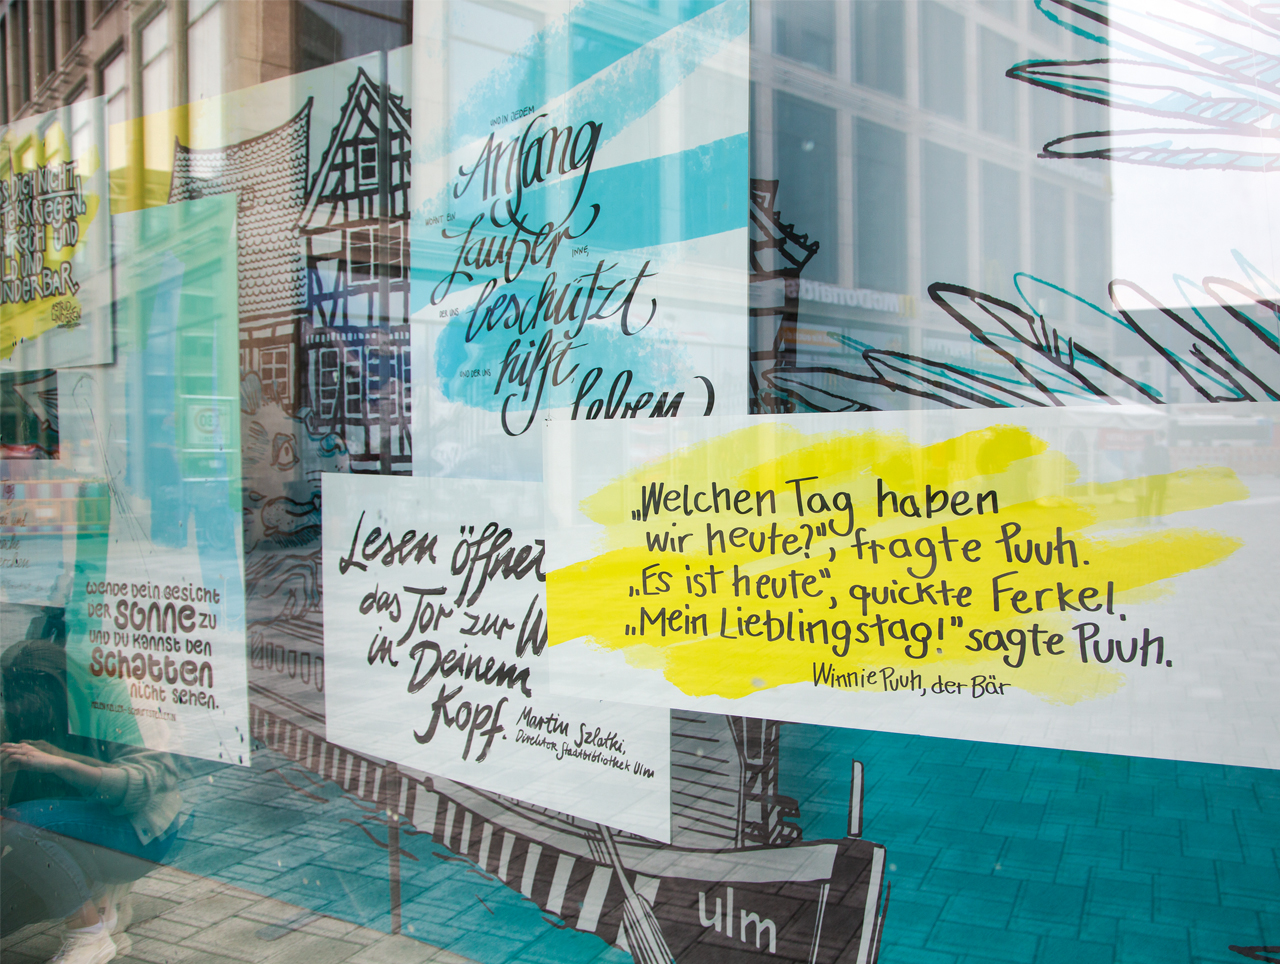 S DICH NICHT
FRECH UND
WILD UND
WUNDERBAR.
UND IN JEDEM
Anfang
WOHNT EIN
Zauber
INNE,
DER UNS
beschützt
UND DER UNS
hilft,
leben)
McDonald's
WENDE DEIN GESICHT
DER SONNE ZU
UND DU KANNST DEN
SCHATTEN
NICHT SEHEN.
Lesen öffnet
das Tor zur W
in Deinem
Kopf.
Martin Szlatki,
Direktor Stadtbibliothek Ulm
„Welchen Tag haben
wir heute?", fragte Puuh.
„Es ist heute", quickte Ferkel.
„Mein Lieblingstag!" sagte Puuh.
Winnie Puuh, der Bär
ulm